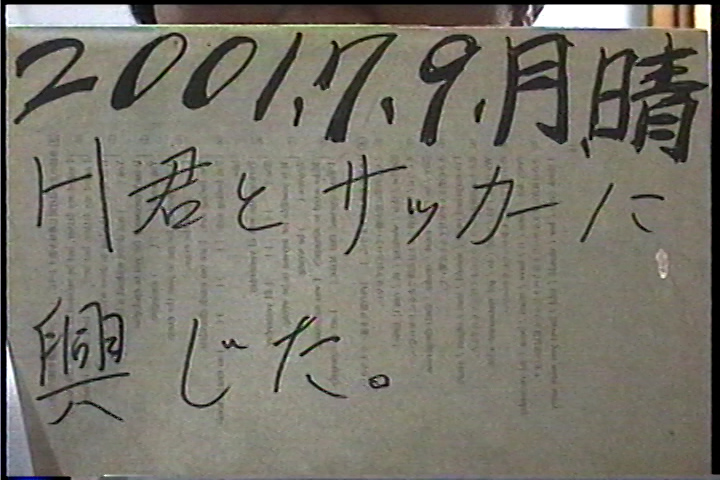 2001.7.9.月.晴
H君とサッカーに
興じた。